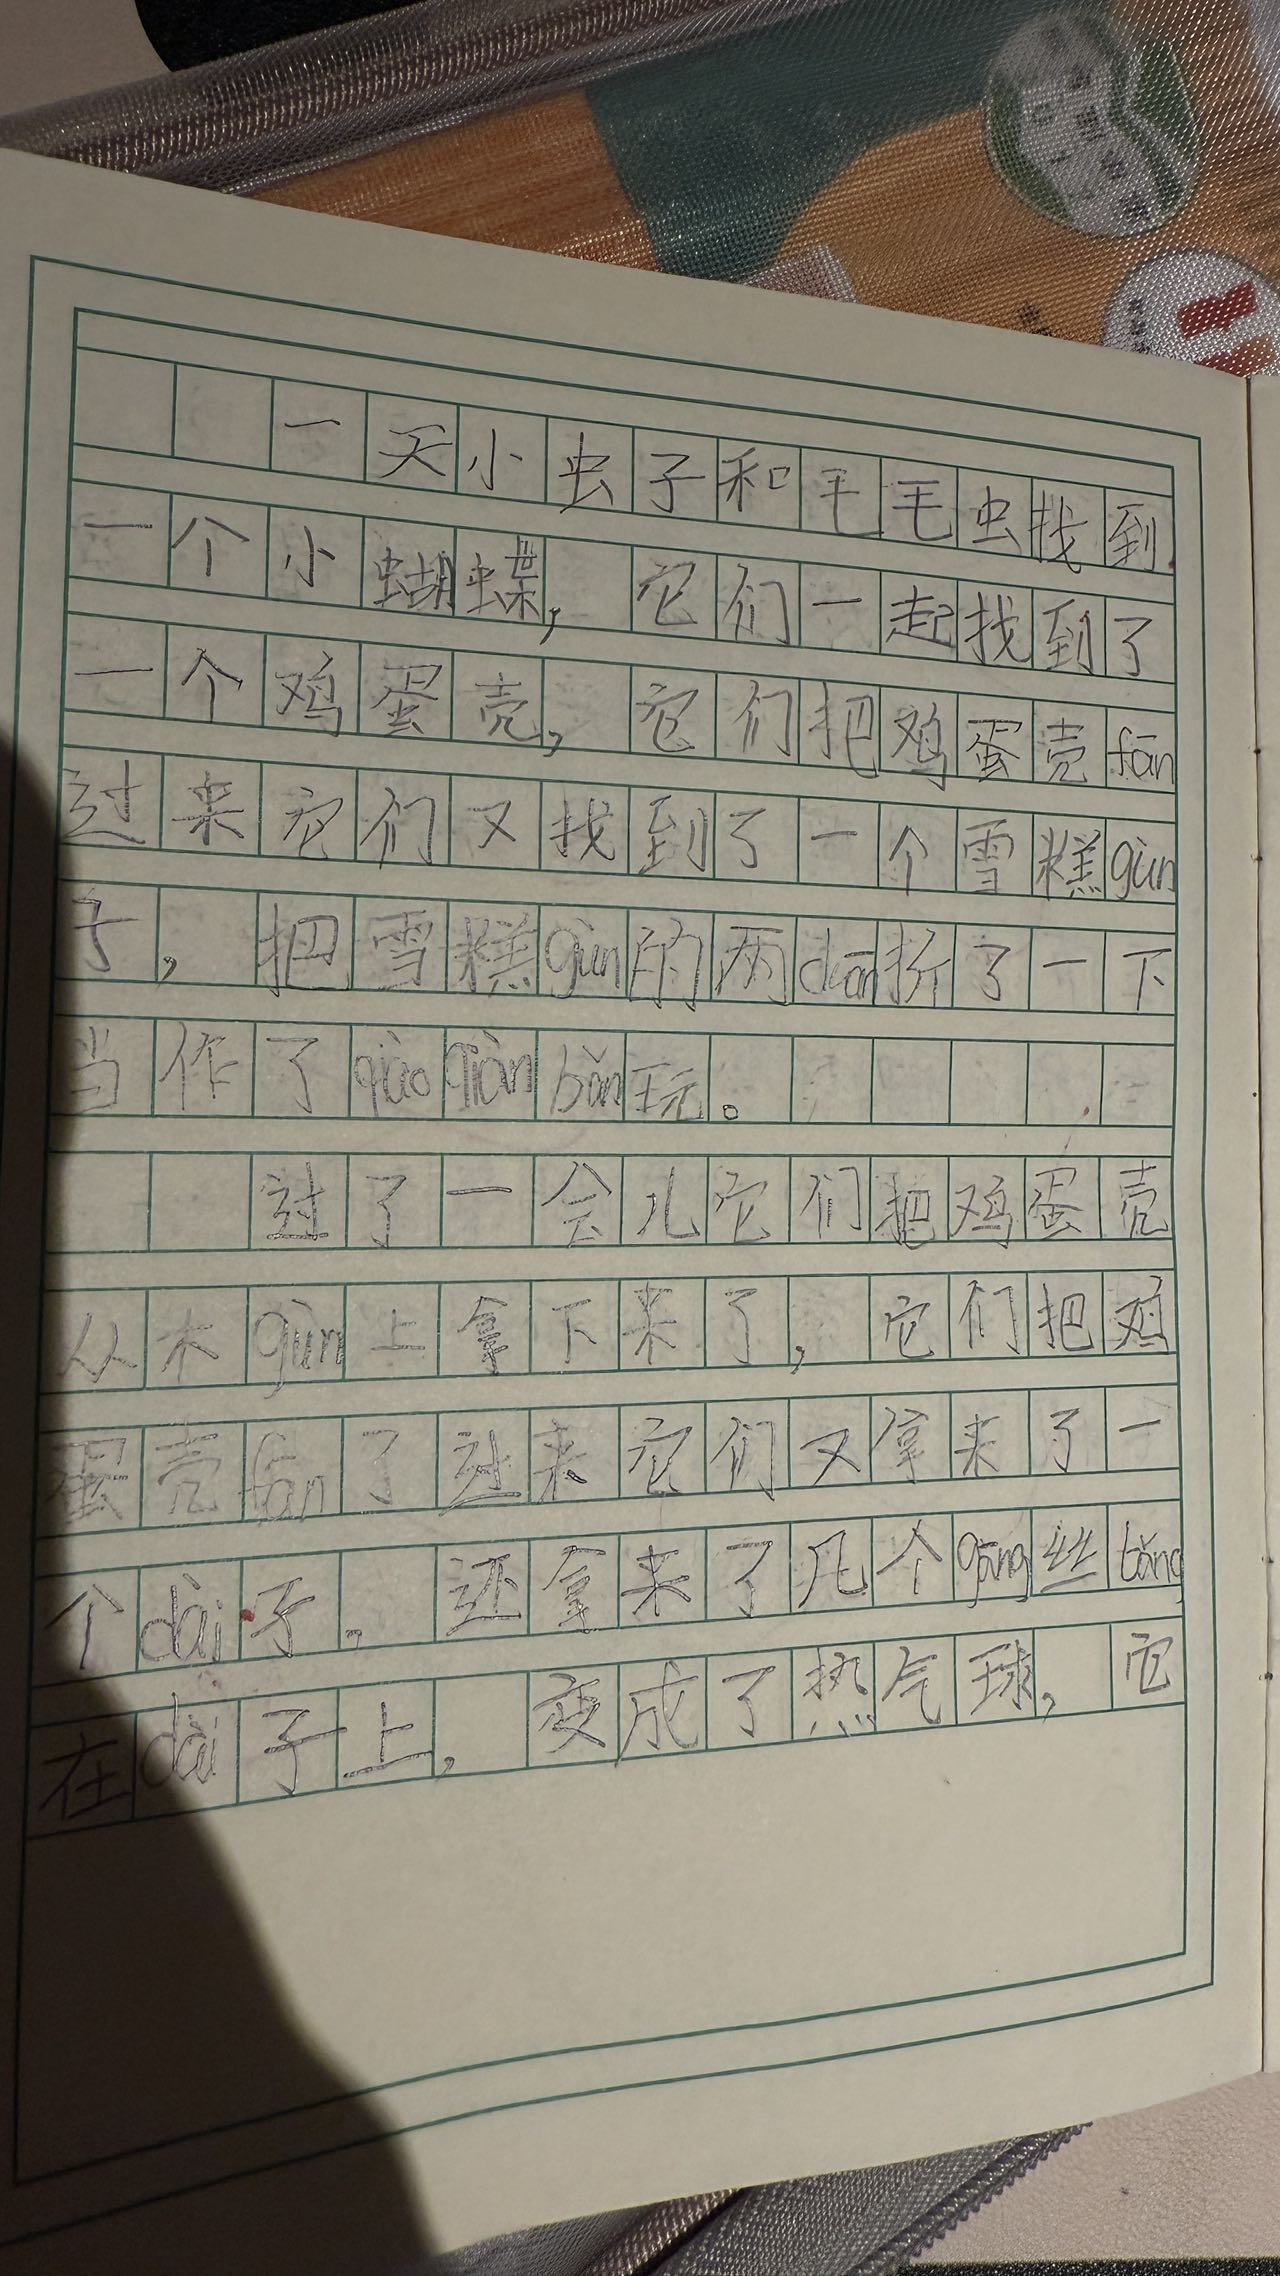 一天小虫子和毛毛虫找到
一个小蝴蝶，它们一起找到了
一个鸡蛋壳，它们把鸡蛋壳fān
过来它们又找到了一个雪糕gùn
子，把雪糕gùn的两duān折了一下
当作了qiāoqiānbǎn玩。
过了一会儿它们把鸡蛋壳
从木gùn上拿下来了，它们把鸡
蛋壳fān了过来它们又拿来了一
个dài子。还拿来了几个gāng丝bǎng
在dài子上，变成了热气球，它